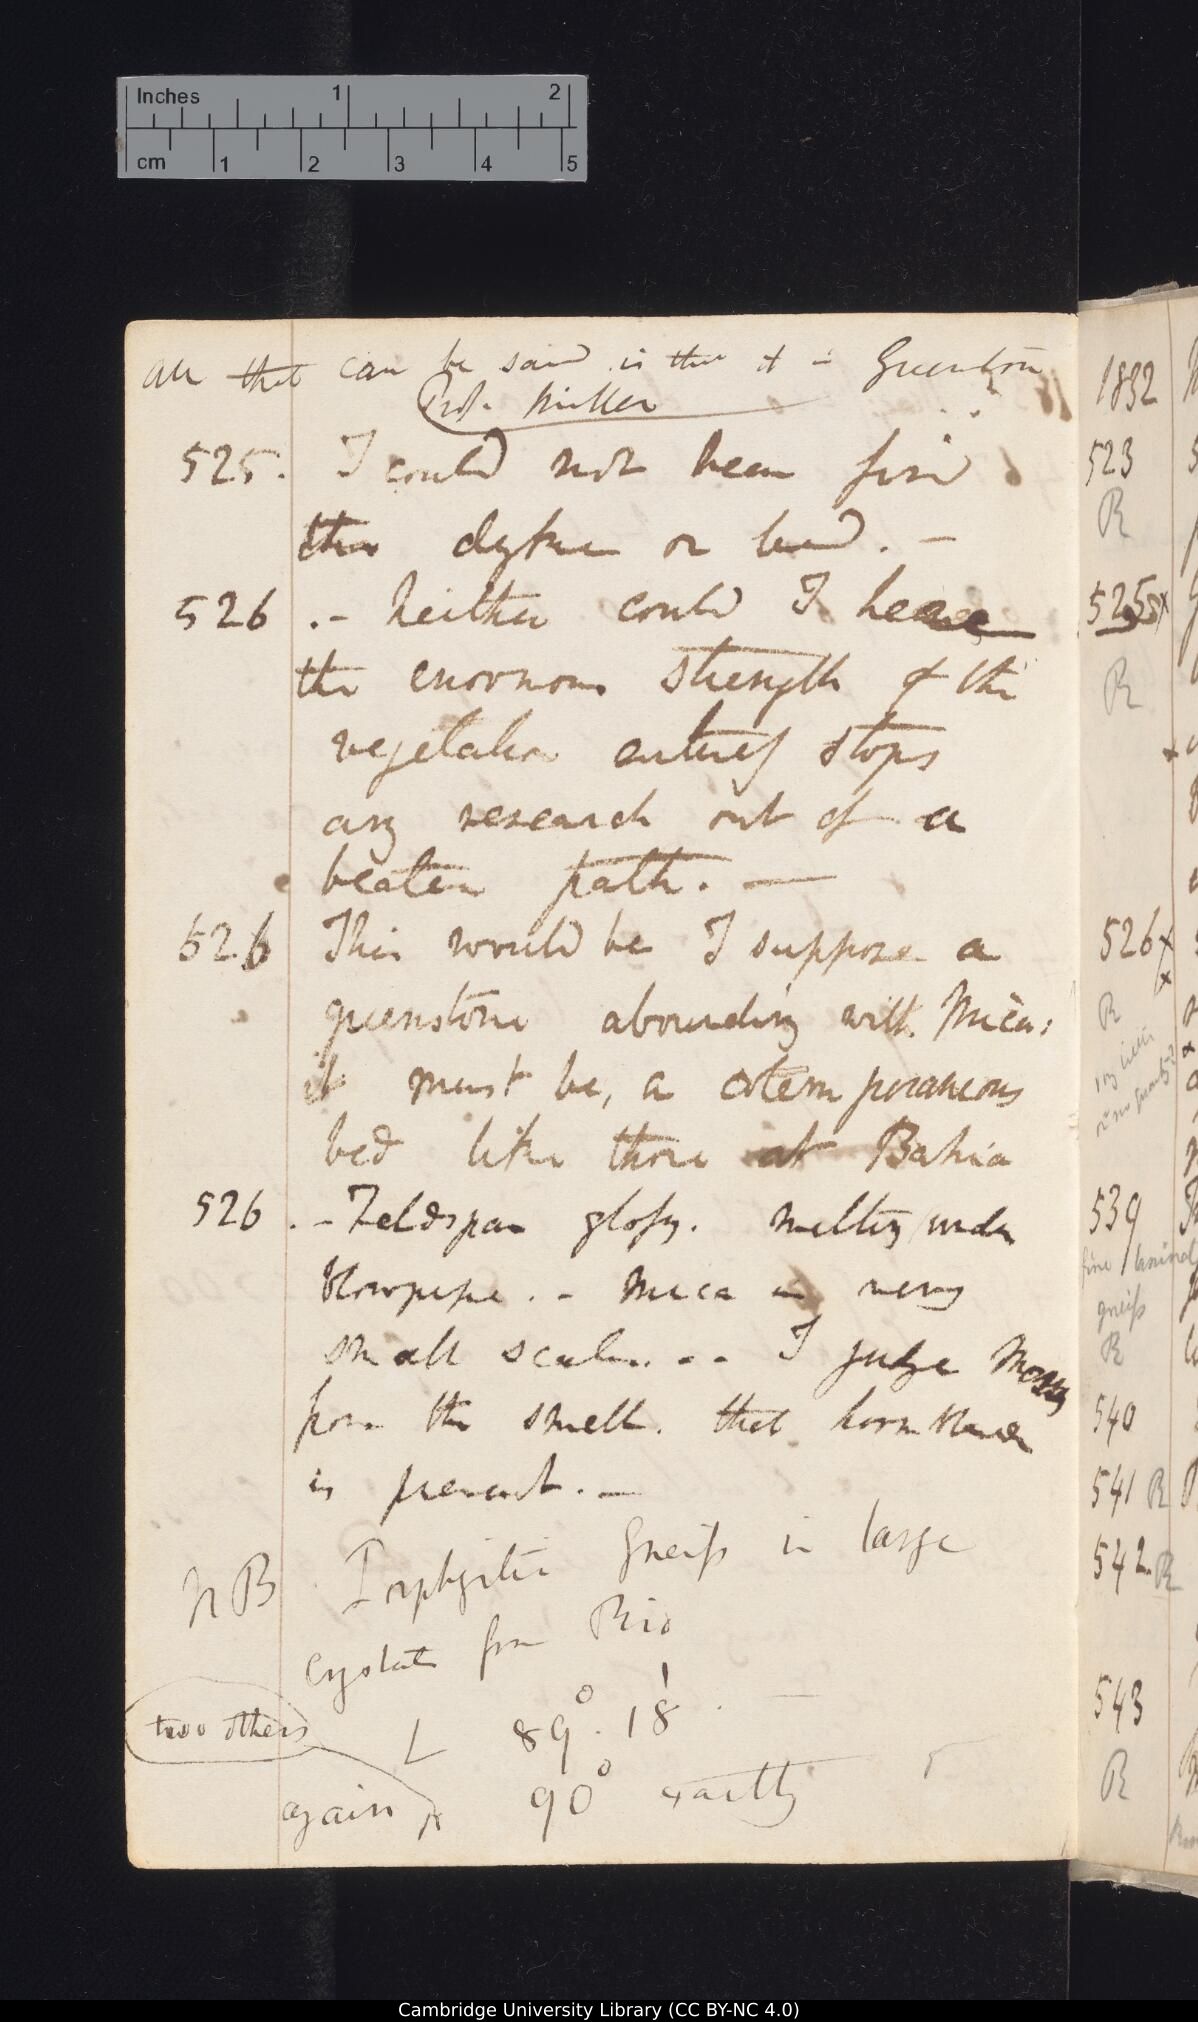 Inches 1 2
cm 1 2 3 4 5
All that can be said is that it is Greenstone
Prof. Miller
525. I could not hear find
this dyke or bed. —
526 .- Neither could I here
the enormous strength of the
vegetation entirely stops
any research out of a
beaten path. —
526 This would be I suppose a
greenstone abounding with Mica:
it must be, a cotemporaneous
bed like those at Bahia
526 . - Feldspar glossy. melting under
Blowpipe. - Mica in very
small scales. - - I judge mostly
from the smell. that hornblende
is present. —
NB Porphyritic Gneiss in large
crystals from Rio
two others
L 89° 18'. —
again 90° exactly
1832
523
R
525
R
526 x
x
R
539
fine
gneiss
R
540
541 R
542. R
543
R
Cambridge University Library (CC BY-NC 4.0)